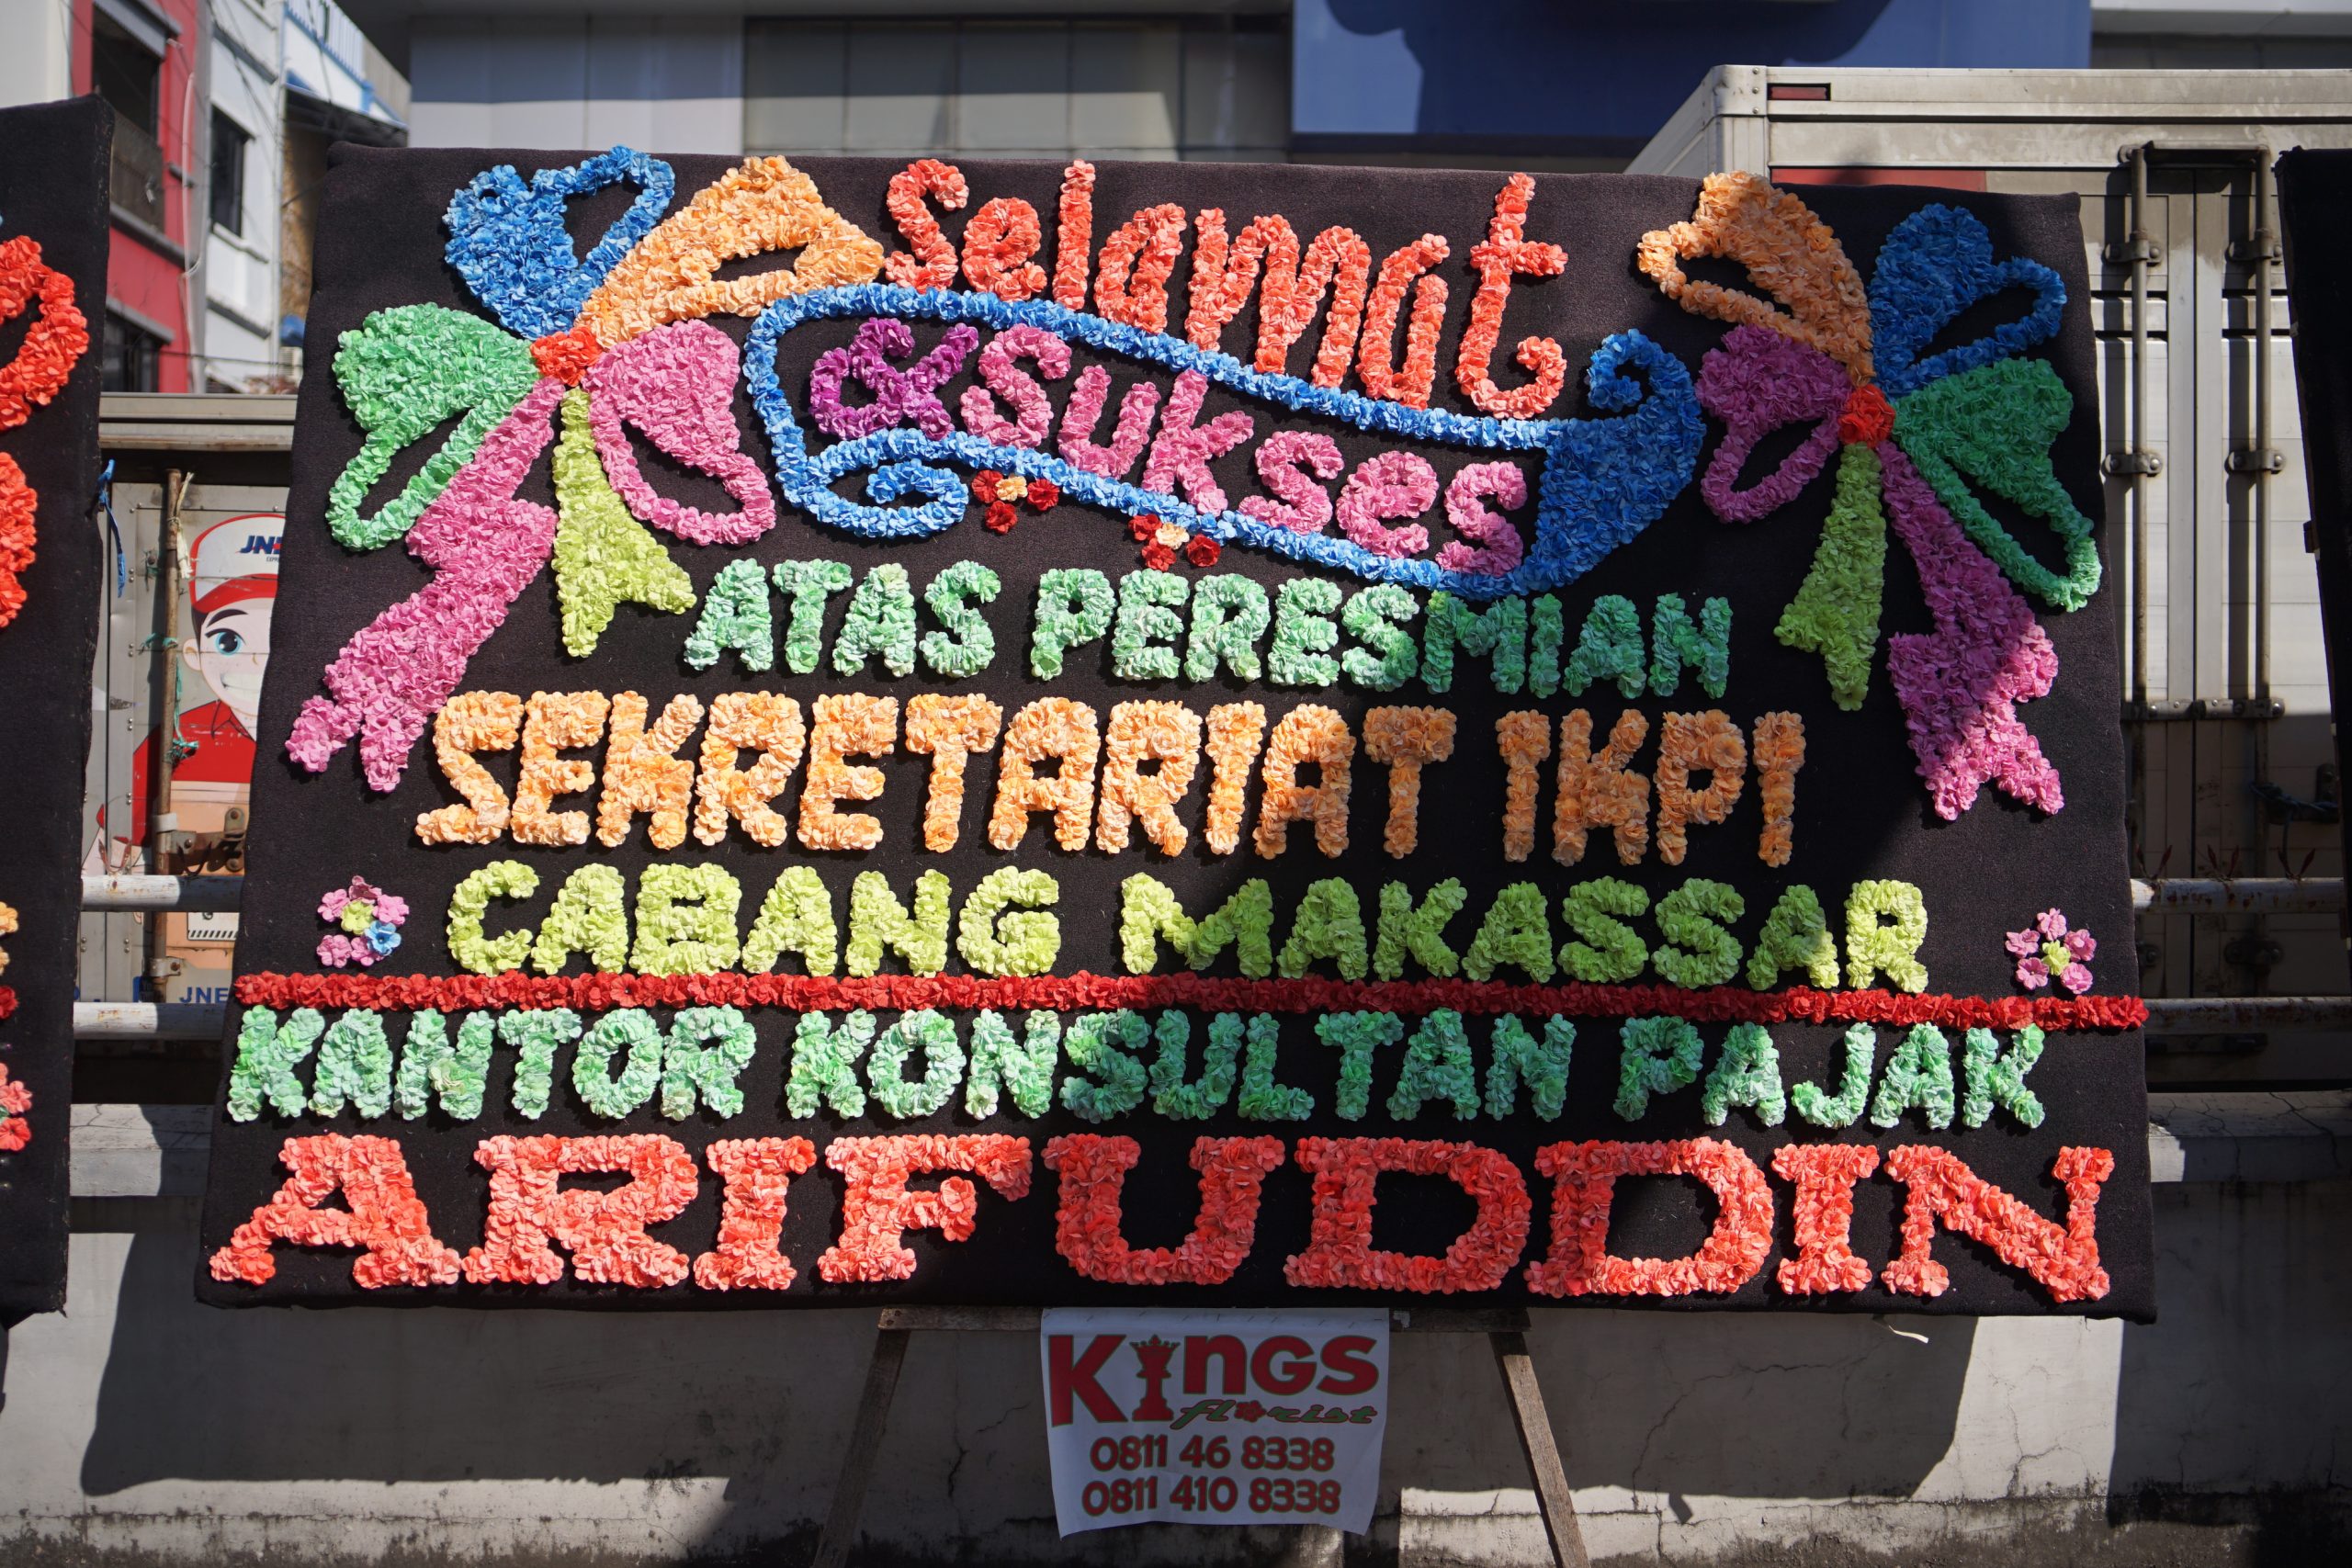 Selamat
& Sukses
ATAS PERESMIAN
SEKRETARIAT IKPI
CABANG MAKASSAR
KANTOR KONSULTAN PAJAK
ARIFUDDIN
KINGS
florist
0811 46 8338
0811 410 8338
JNE